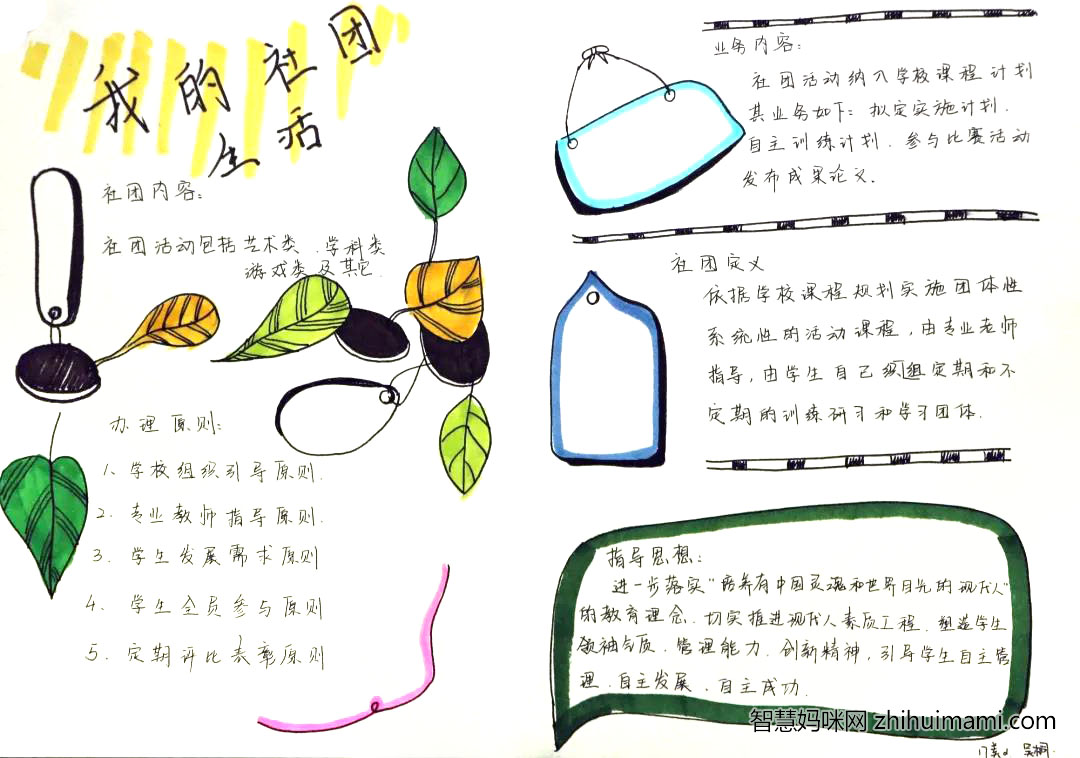 我的社团
生活
社团内容:
社团活动包括艺术类、学科类
游戏类及其它.
办理原则:
1、学校组织引导原则.
2、专业教师指导原则.
3、学生发展需求原则
4、学生全员参与原则
5、定期评比表彰原则
业务内容:
社团活动纳入学校课程计划
其业务如下: 拟定实施计划.
自主训练计划. 参与比赛活动
发布成果论文.
社团定义
依据学校课程规划实施团体性
系统性的活动课程,由专业老师
指导,由学生自己组定期和不
定期的训练研习和学习团体.
指导思想:
进一步落实“培养有中国灵魂和世界目光的现代人”
的教育理念、切实推进现代人素质工程、塑造学生
领袖气质、管理能力、创新精神,引导学生自主管
理、自主发展、自主成功.
智慧妈咪网 zhihuimami.com